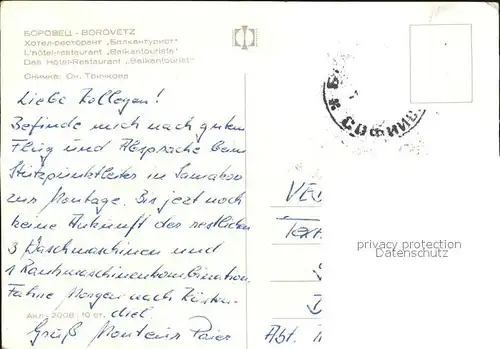 БОРОВЕЦ - BOROVETZ
Хотел-ресторант „Балкантурист"
L'hôtel-restaurant „Balkantouriste"
Das Hotel-Restaurant „Balkantourist"
Снимка:
Liebe Kollegen!
Befinde mich nach gutem
Flug und Absprache beim
Stützpunktleiter in Samakov
zur Montage. Bis jezt noch
keine Ankunft der restlichen
3 Waschmaschinen und
1 Rauhmaschinenkombination.
Fahre Morgen nach Küsten-
diel.
Акл. 2008 | 10 ст.
Gruß Monteur
VE
Text
Abt.
СОФИЙС
privacy protection
Datenschutz